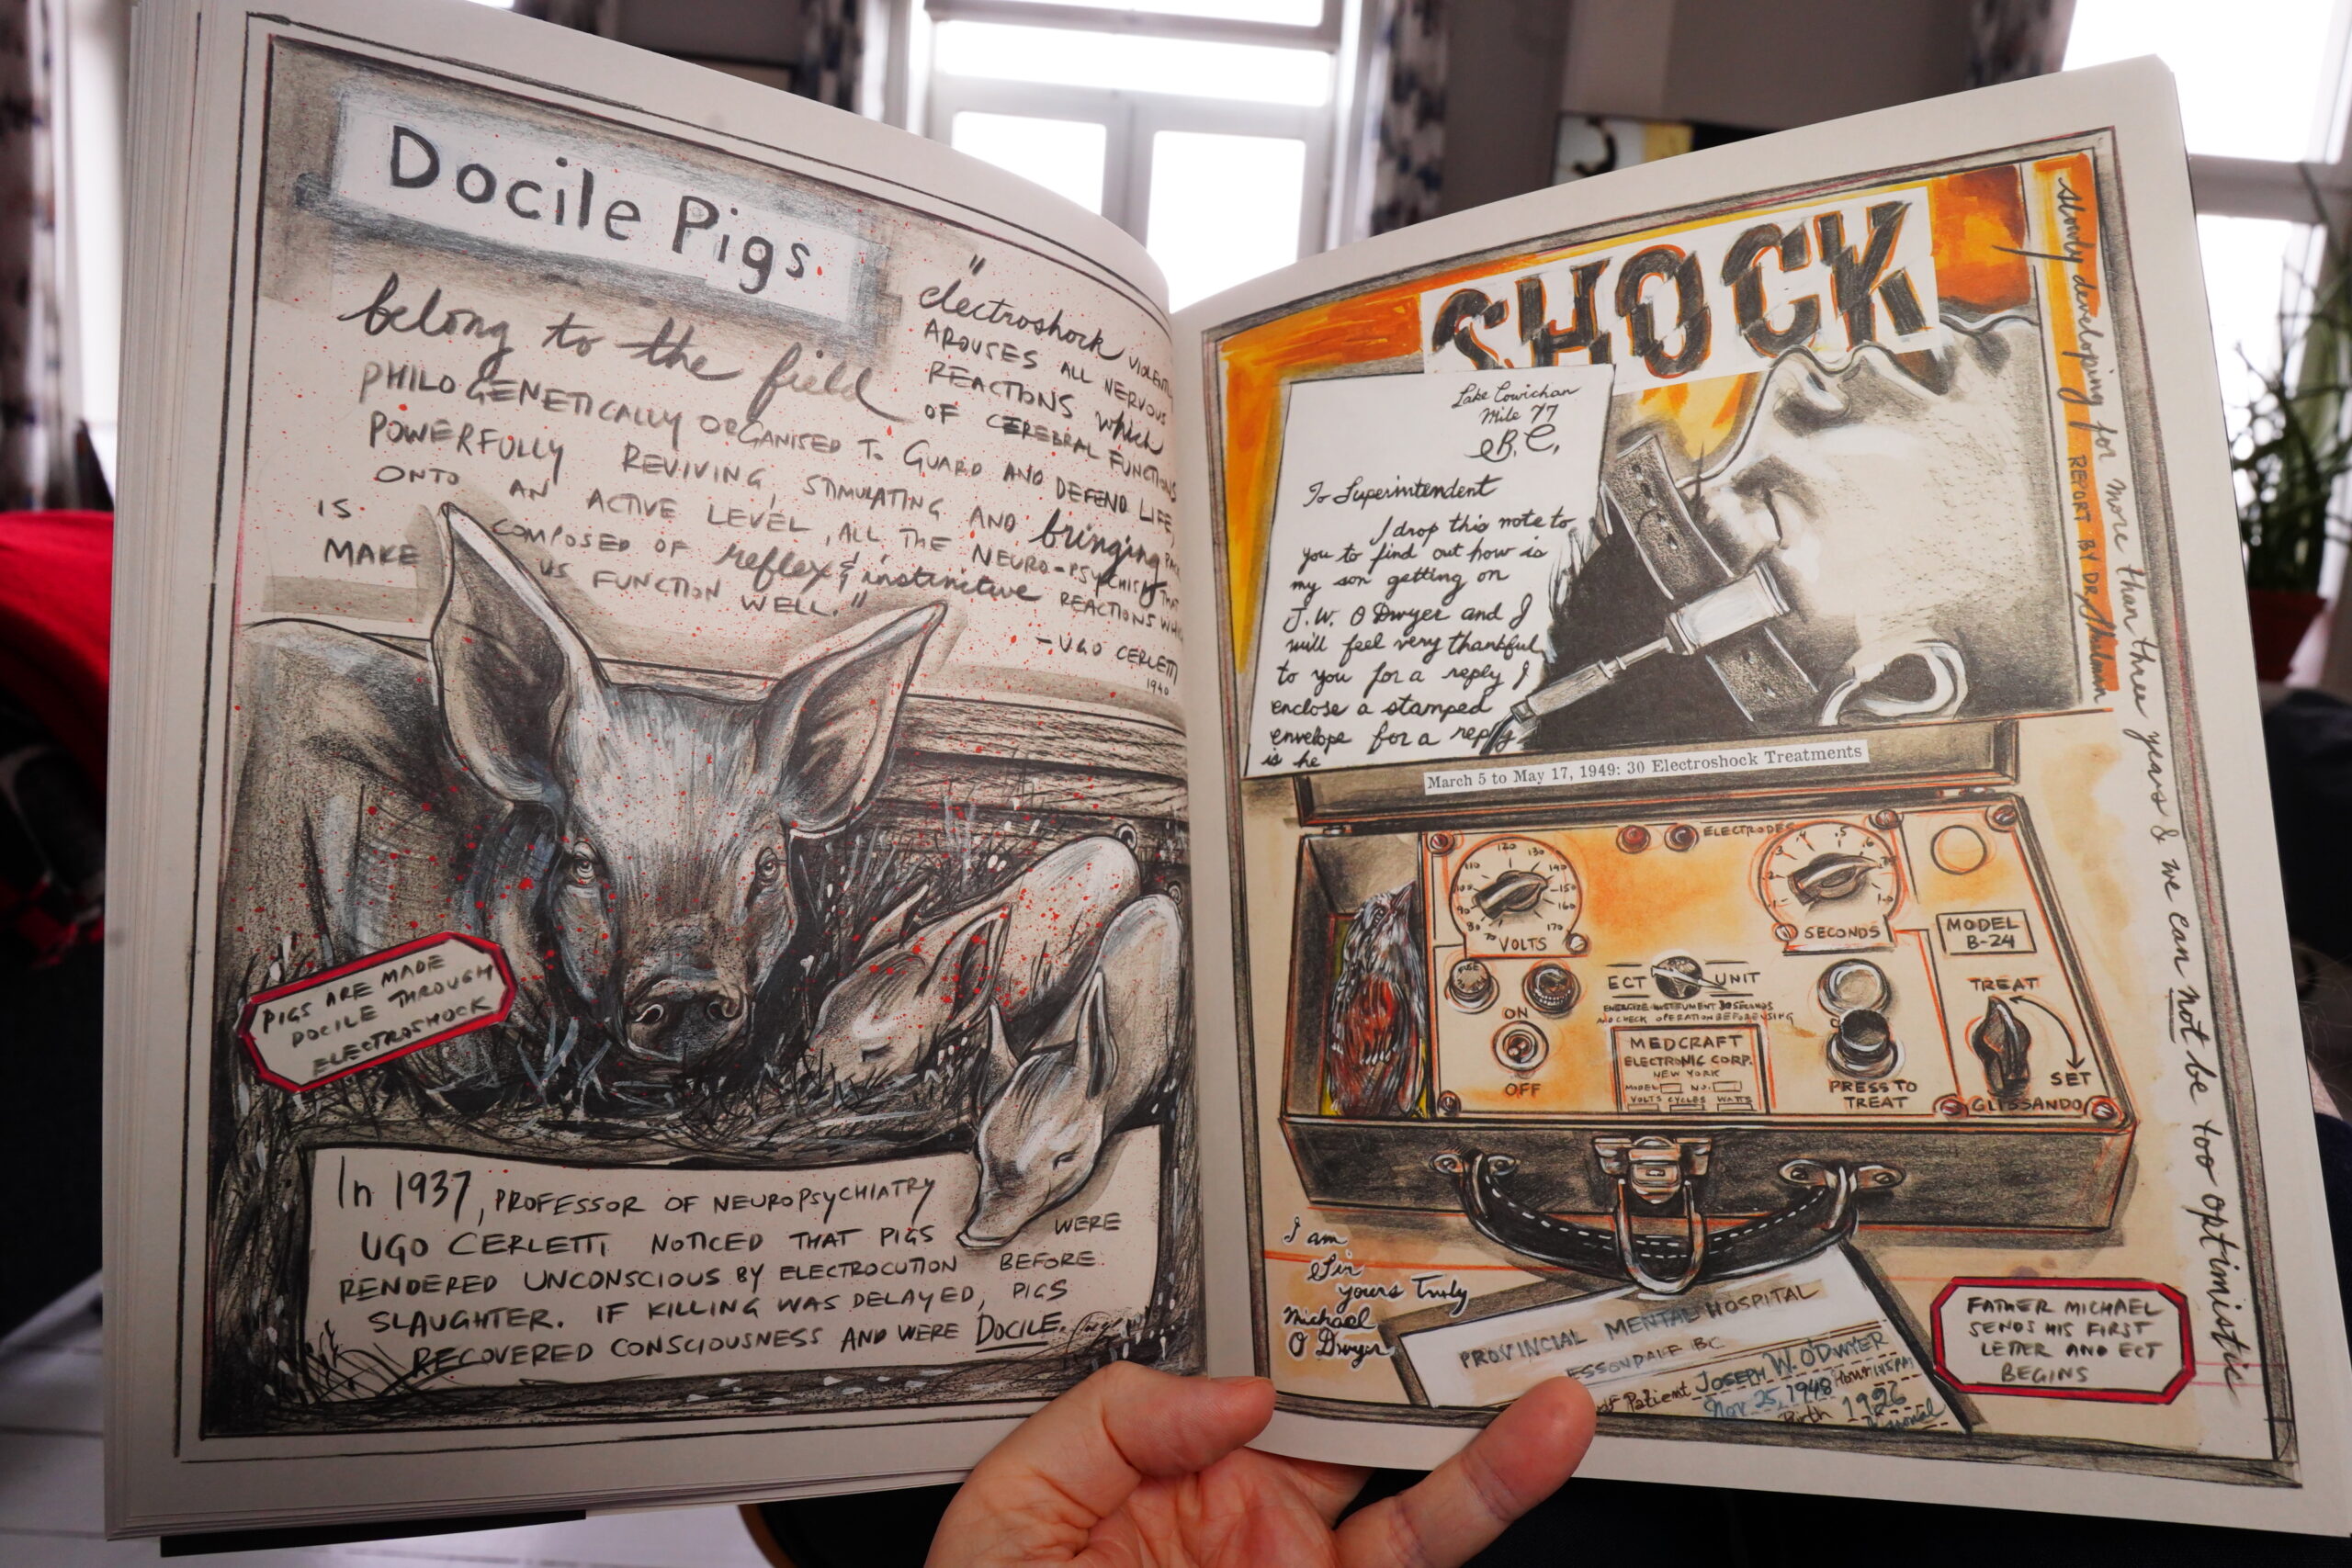 Docile Pigs
belong to the field
"electroshock
AROUSES ALL NERVOUS
REACTIONS which
OF CEREBRAL
PHILOGENETICALLY ORGANISED TO GUARD AND DEFEND LIFE,
POWERFULLY REVIVING, STIMULATING AND bringing
ONTO AN ACTIVE LEVEL, ALL THE NEURO-
IS COMPOSED OF reflex & instinctive REACTIONS
MAKE US FUNCTION WELL."
-UGO CERLETTI
1940
PIGS ARE MADE
DOCILE THROUGH
ELECTROSHOCK
In 1937, PROFESSOR OF NEUROPSYCHIATRY
UGO CERLETTI NOTICED THAT PIGS WERE
RENDERED UNCONSCIOUS BY ELECTROCUTION BEFORE
SLAUGHTER. IF KILLING WAS DELAYED, PIGS
RECOVERED CONSCIOUSNESS AND WERE DOCILE.
SHOCK
Lake Cowichan
Mile 77
B.C.
To Superintendent
I drop this note to
you to find out how is
my son getting on
J.W. O Dwyer and I
will feel very thankful
to you for a reply I
enclose a stamped
envelope for a reply
is he
slowly developing for more than three years & we can not be too optimistic
REPORT BY DR.
March 5 to May 17, 1949: 30 Electroshock Treatments
ELECTRODES
110 120 130 140 150 160 170
100 90 80 70
VOLTS
SECONDS
MODEL
B-24
FUSE
ECT UNIT
ENERGIZE INSTRUMENT 30 SECONDS
AND CHECK OPERATION BEFORE USING
ON
OFF
MEDCRAFT
ELECTRONIC CORP.
NEW YORK
MODEL NO.
VOLTS CYCLES WATTS
PRESS TO
TREAT
TREAT
SET
GLISSANDO
I am
Sir
yours Truly
Michael
O Dwyer
PROVINCIAL MENTAL HOSPITAL
ESSONDALE BC
Patient JOSEPH W. O'DWYER
Nov 25, 1948 Hour 1:45PM
Birth 1926
FATHER MICHAEL
SENDS HIS FIRST
LETTER AND ECT
BEGINS